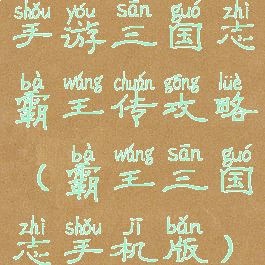 shǒu yóu sān guó zhì
手游三国志
bà wáng chuán gōng lüè
霸王传攻略
bà wáng sān guó
(霸王三国
zhì shǒu jī bǎn
志手机版)